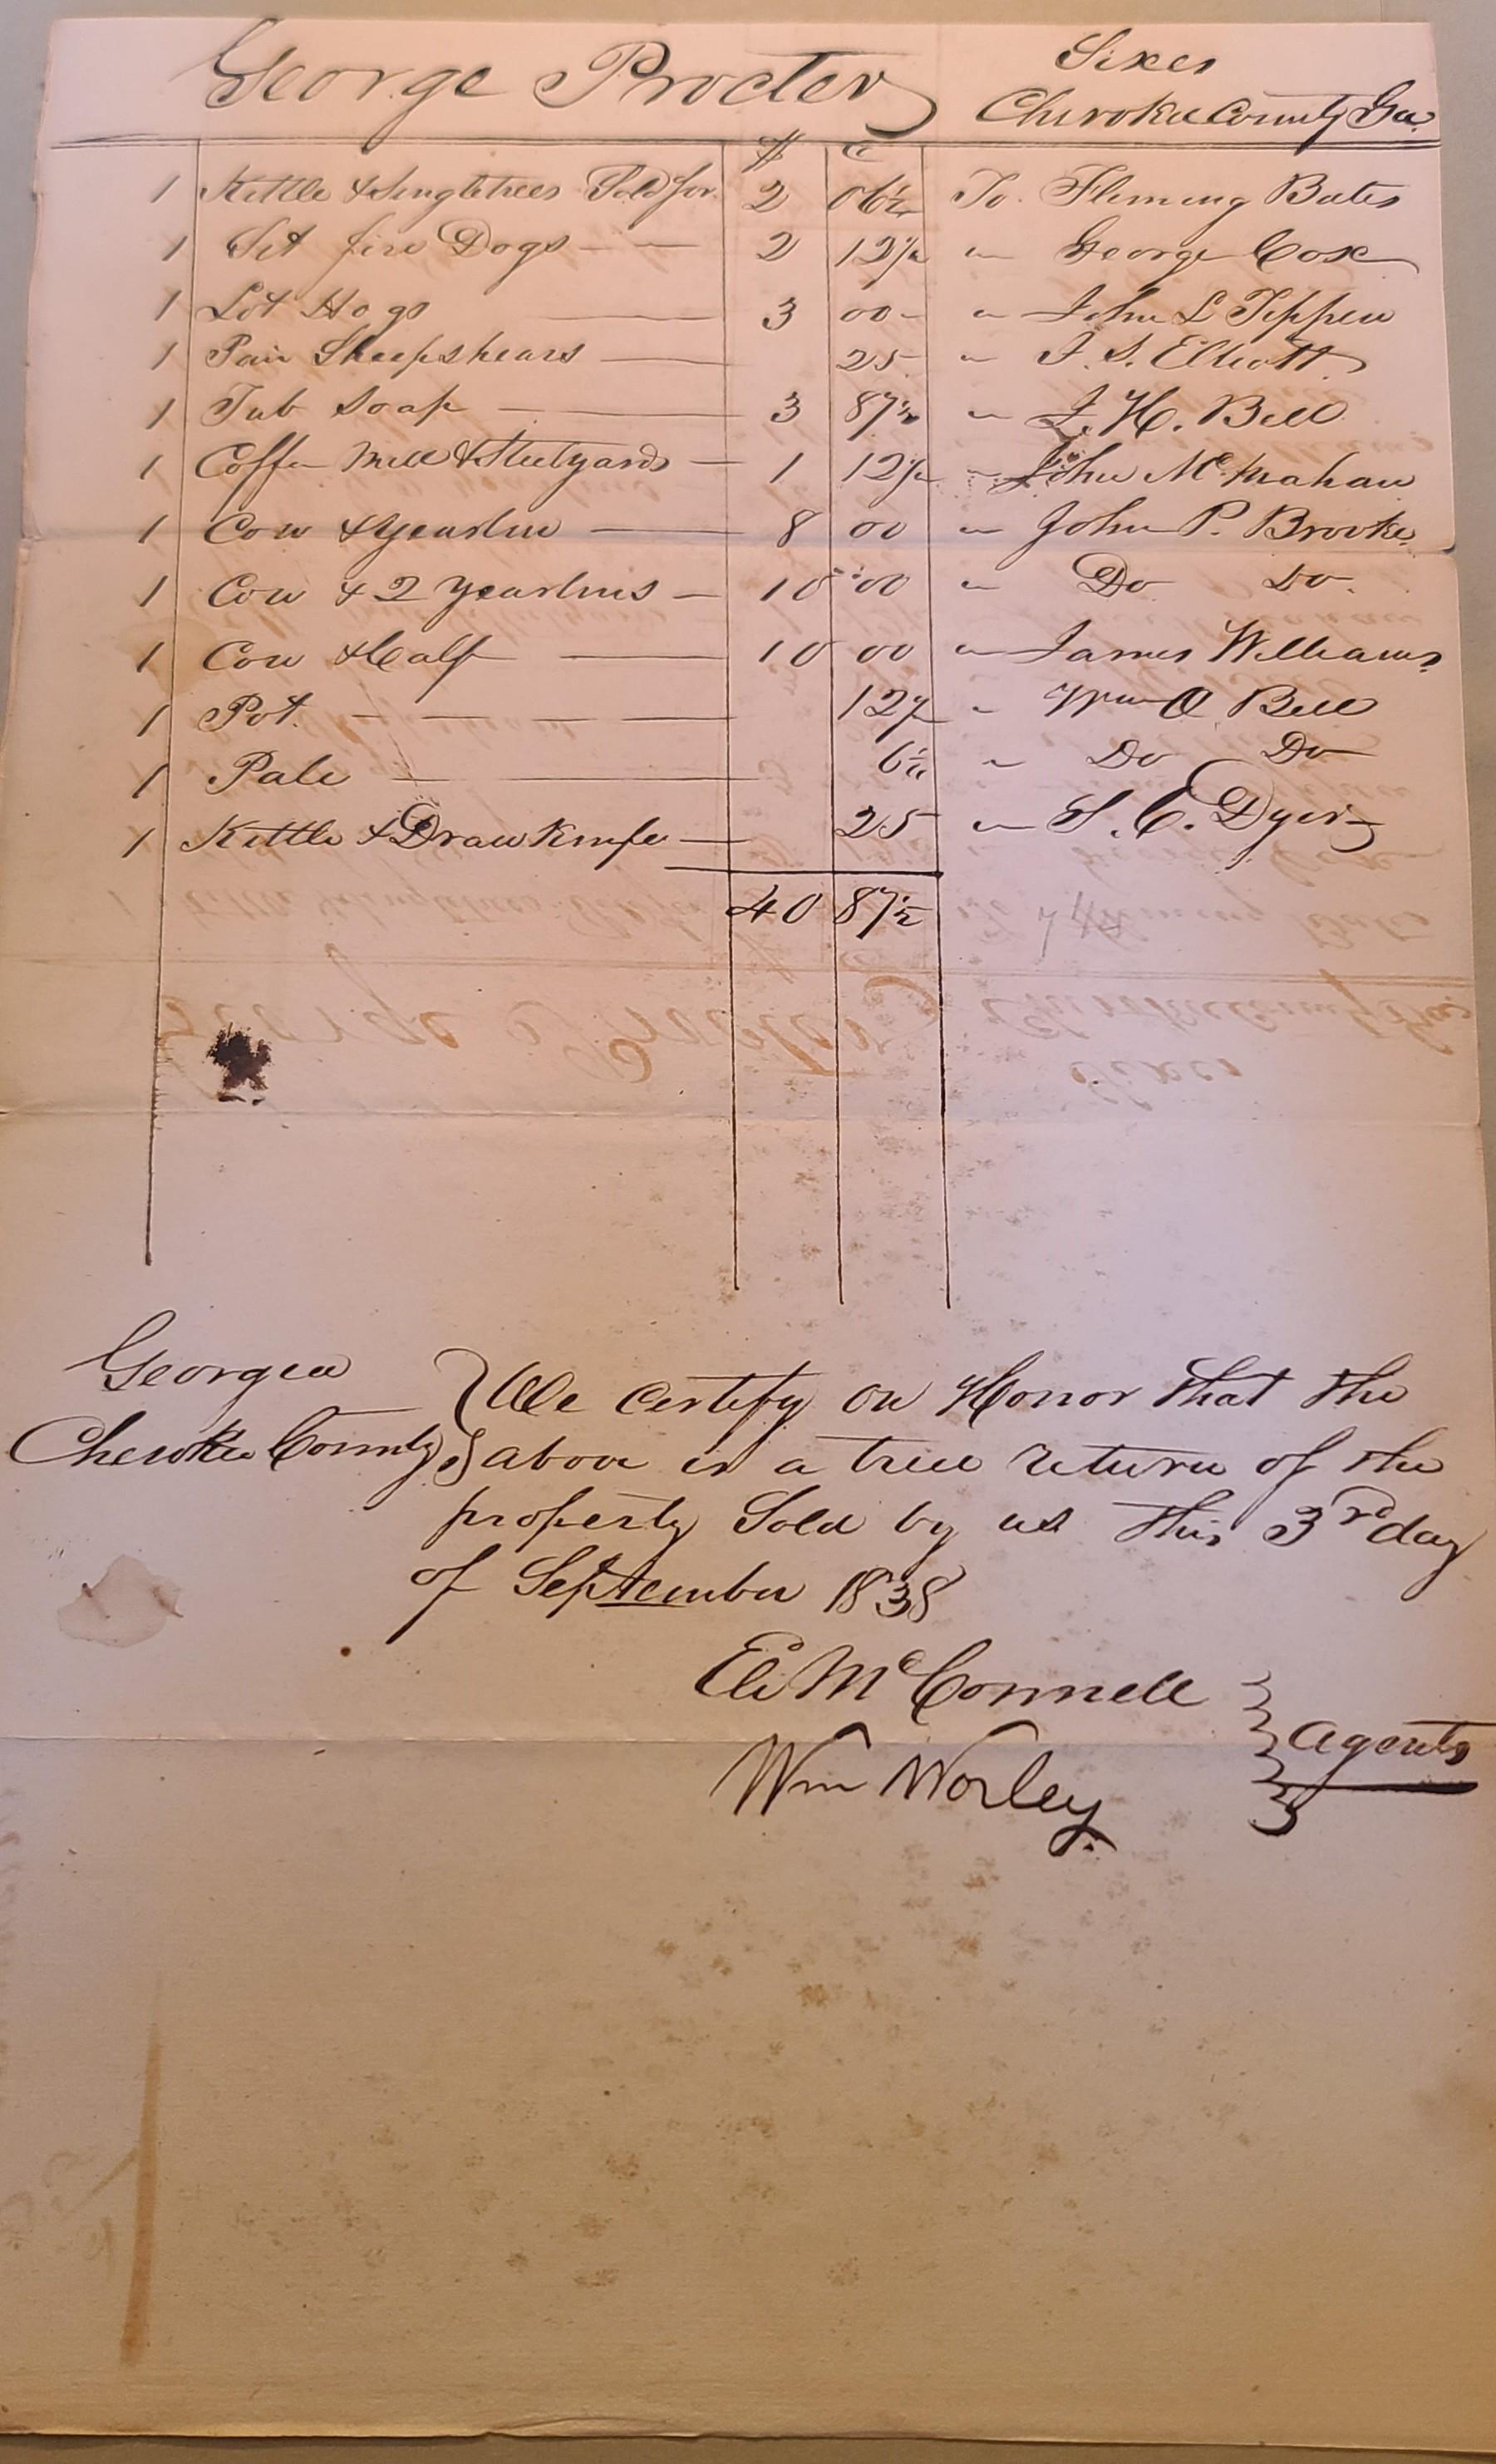 George Procter
Sixes
Cherokee County Ga
$ c
1 Kettle & Singletrees Sold for 2 06¼ To Fleming Bates
1 Set fire Dogs — — 2 12½ " George Cox
1 Lot Hogs — 3 00 " John L Tippen
1 Pair Sheepshears — 25 " J. S. Elliott
1 Tub Soap — 3 87½ " J. H. Bell
1 Coffee Mill & Steelyards — 1 12½ " John McMahan
1 Cow & Yearlin — 8 00 " John P. Brooke
1 Cow & 2 Yearlins — 10 00 " Do Do
1 Cow & Calf — 10 00 " James Williams
1 Pot — — — — 12½ " Wm Q Bell
1 Pale — — 6¼ " Do Do
1 Kettle & Draw Knife — 25 " S. C. Dyer
40 87½
Georgia } We Certify on Honor that the
Cherokee County } above is a true return of the
property Sold by us this 3rd day
of September 1838
Eli McConnell
Wm Worley
} agents